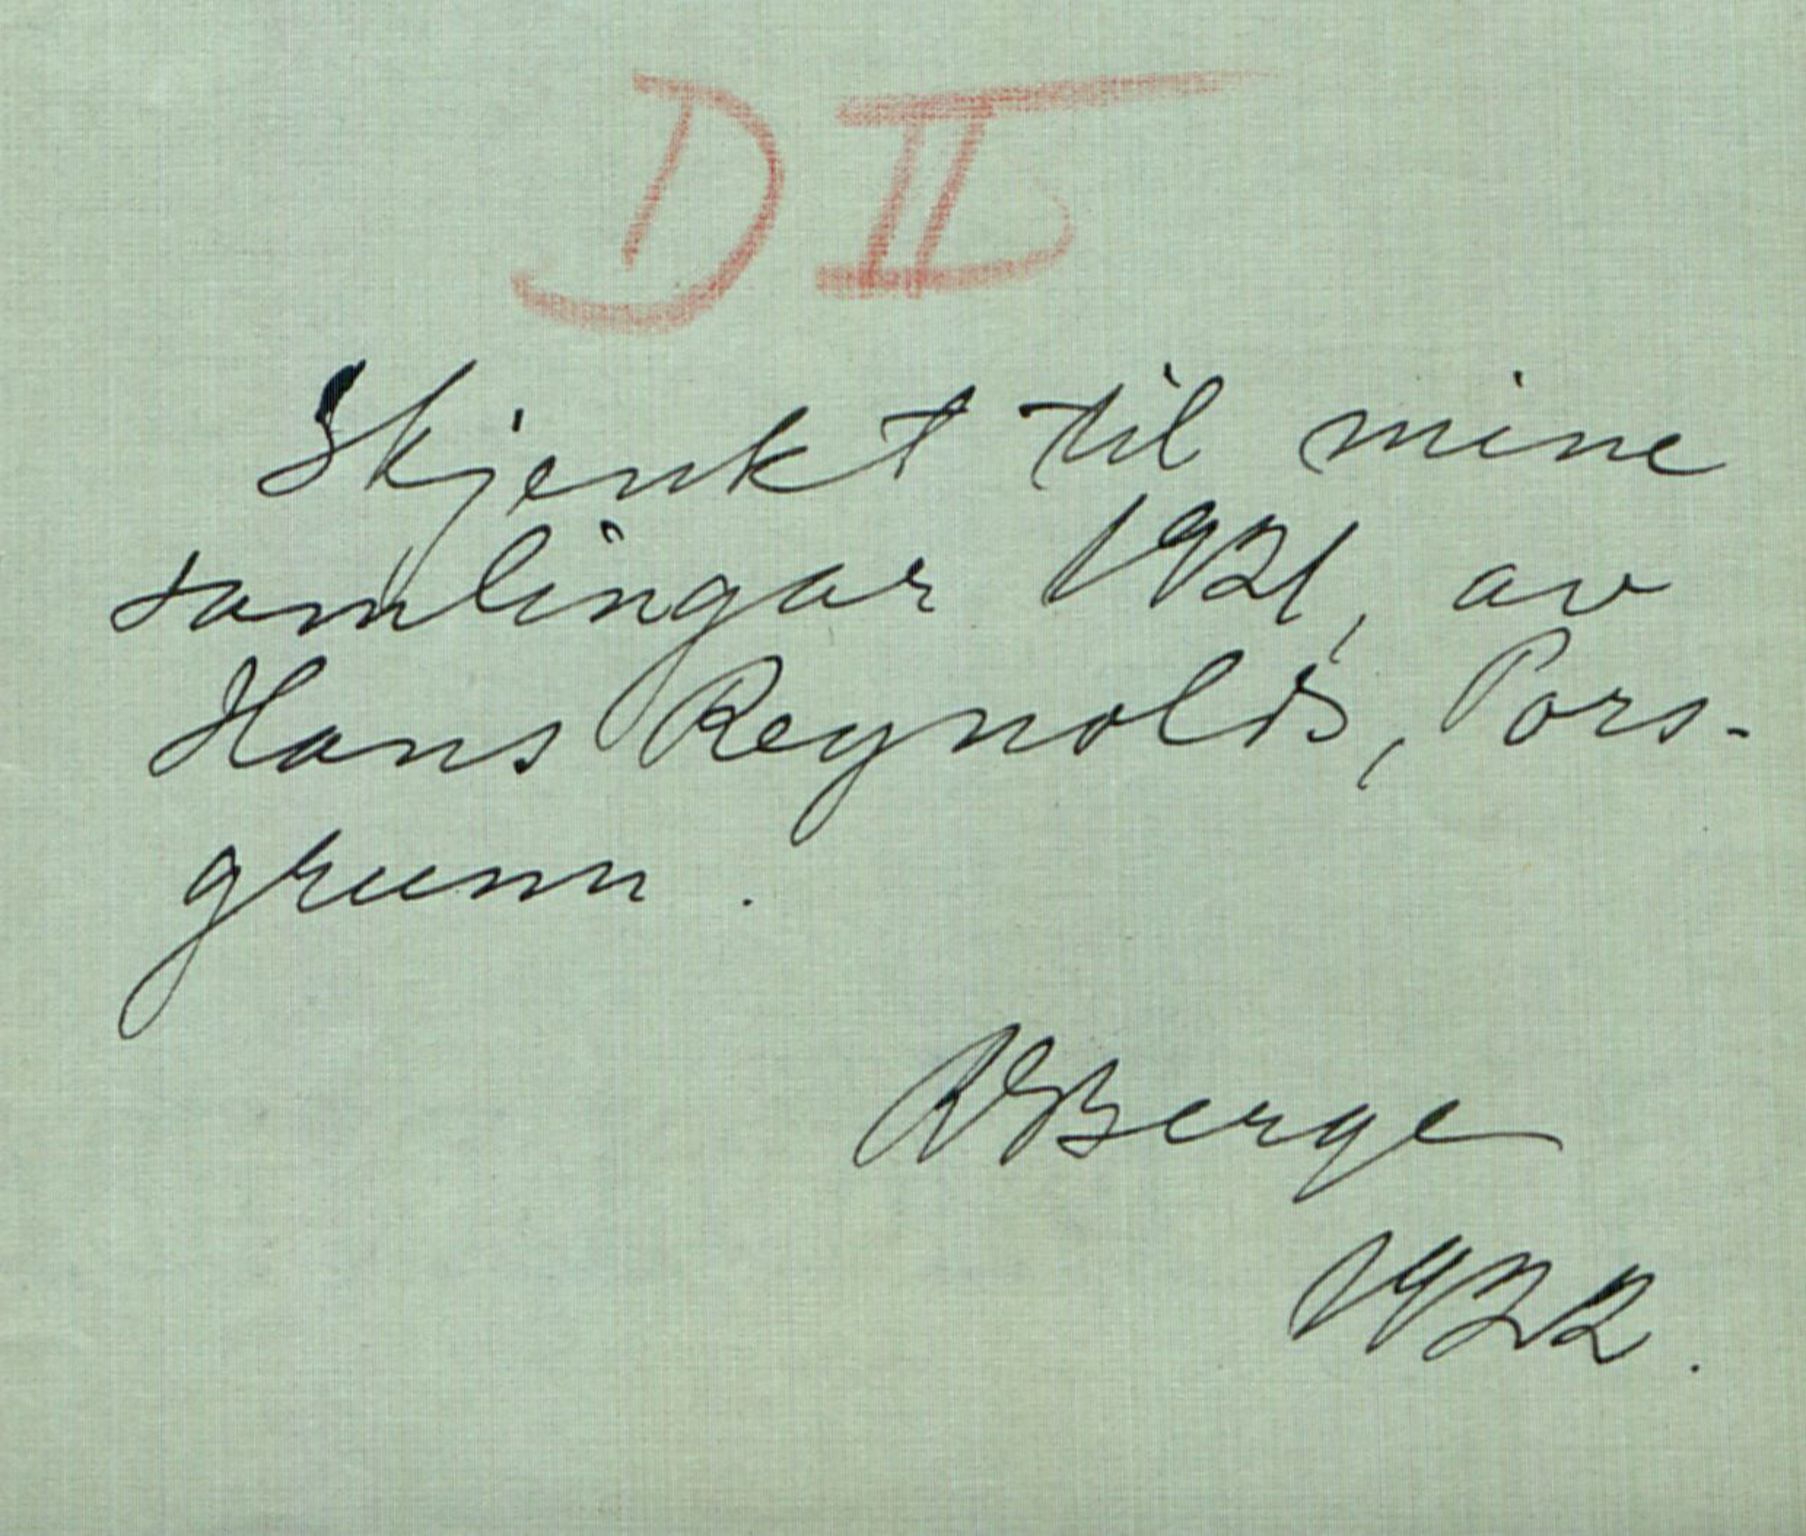 D II
Skjenkt til mine
samlingar 1921, av
Hans Reynolds, Pors-
grunn.
RBerge
1922.